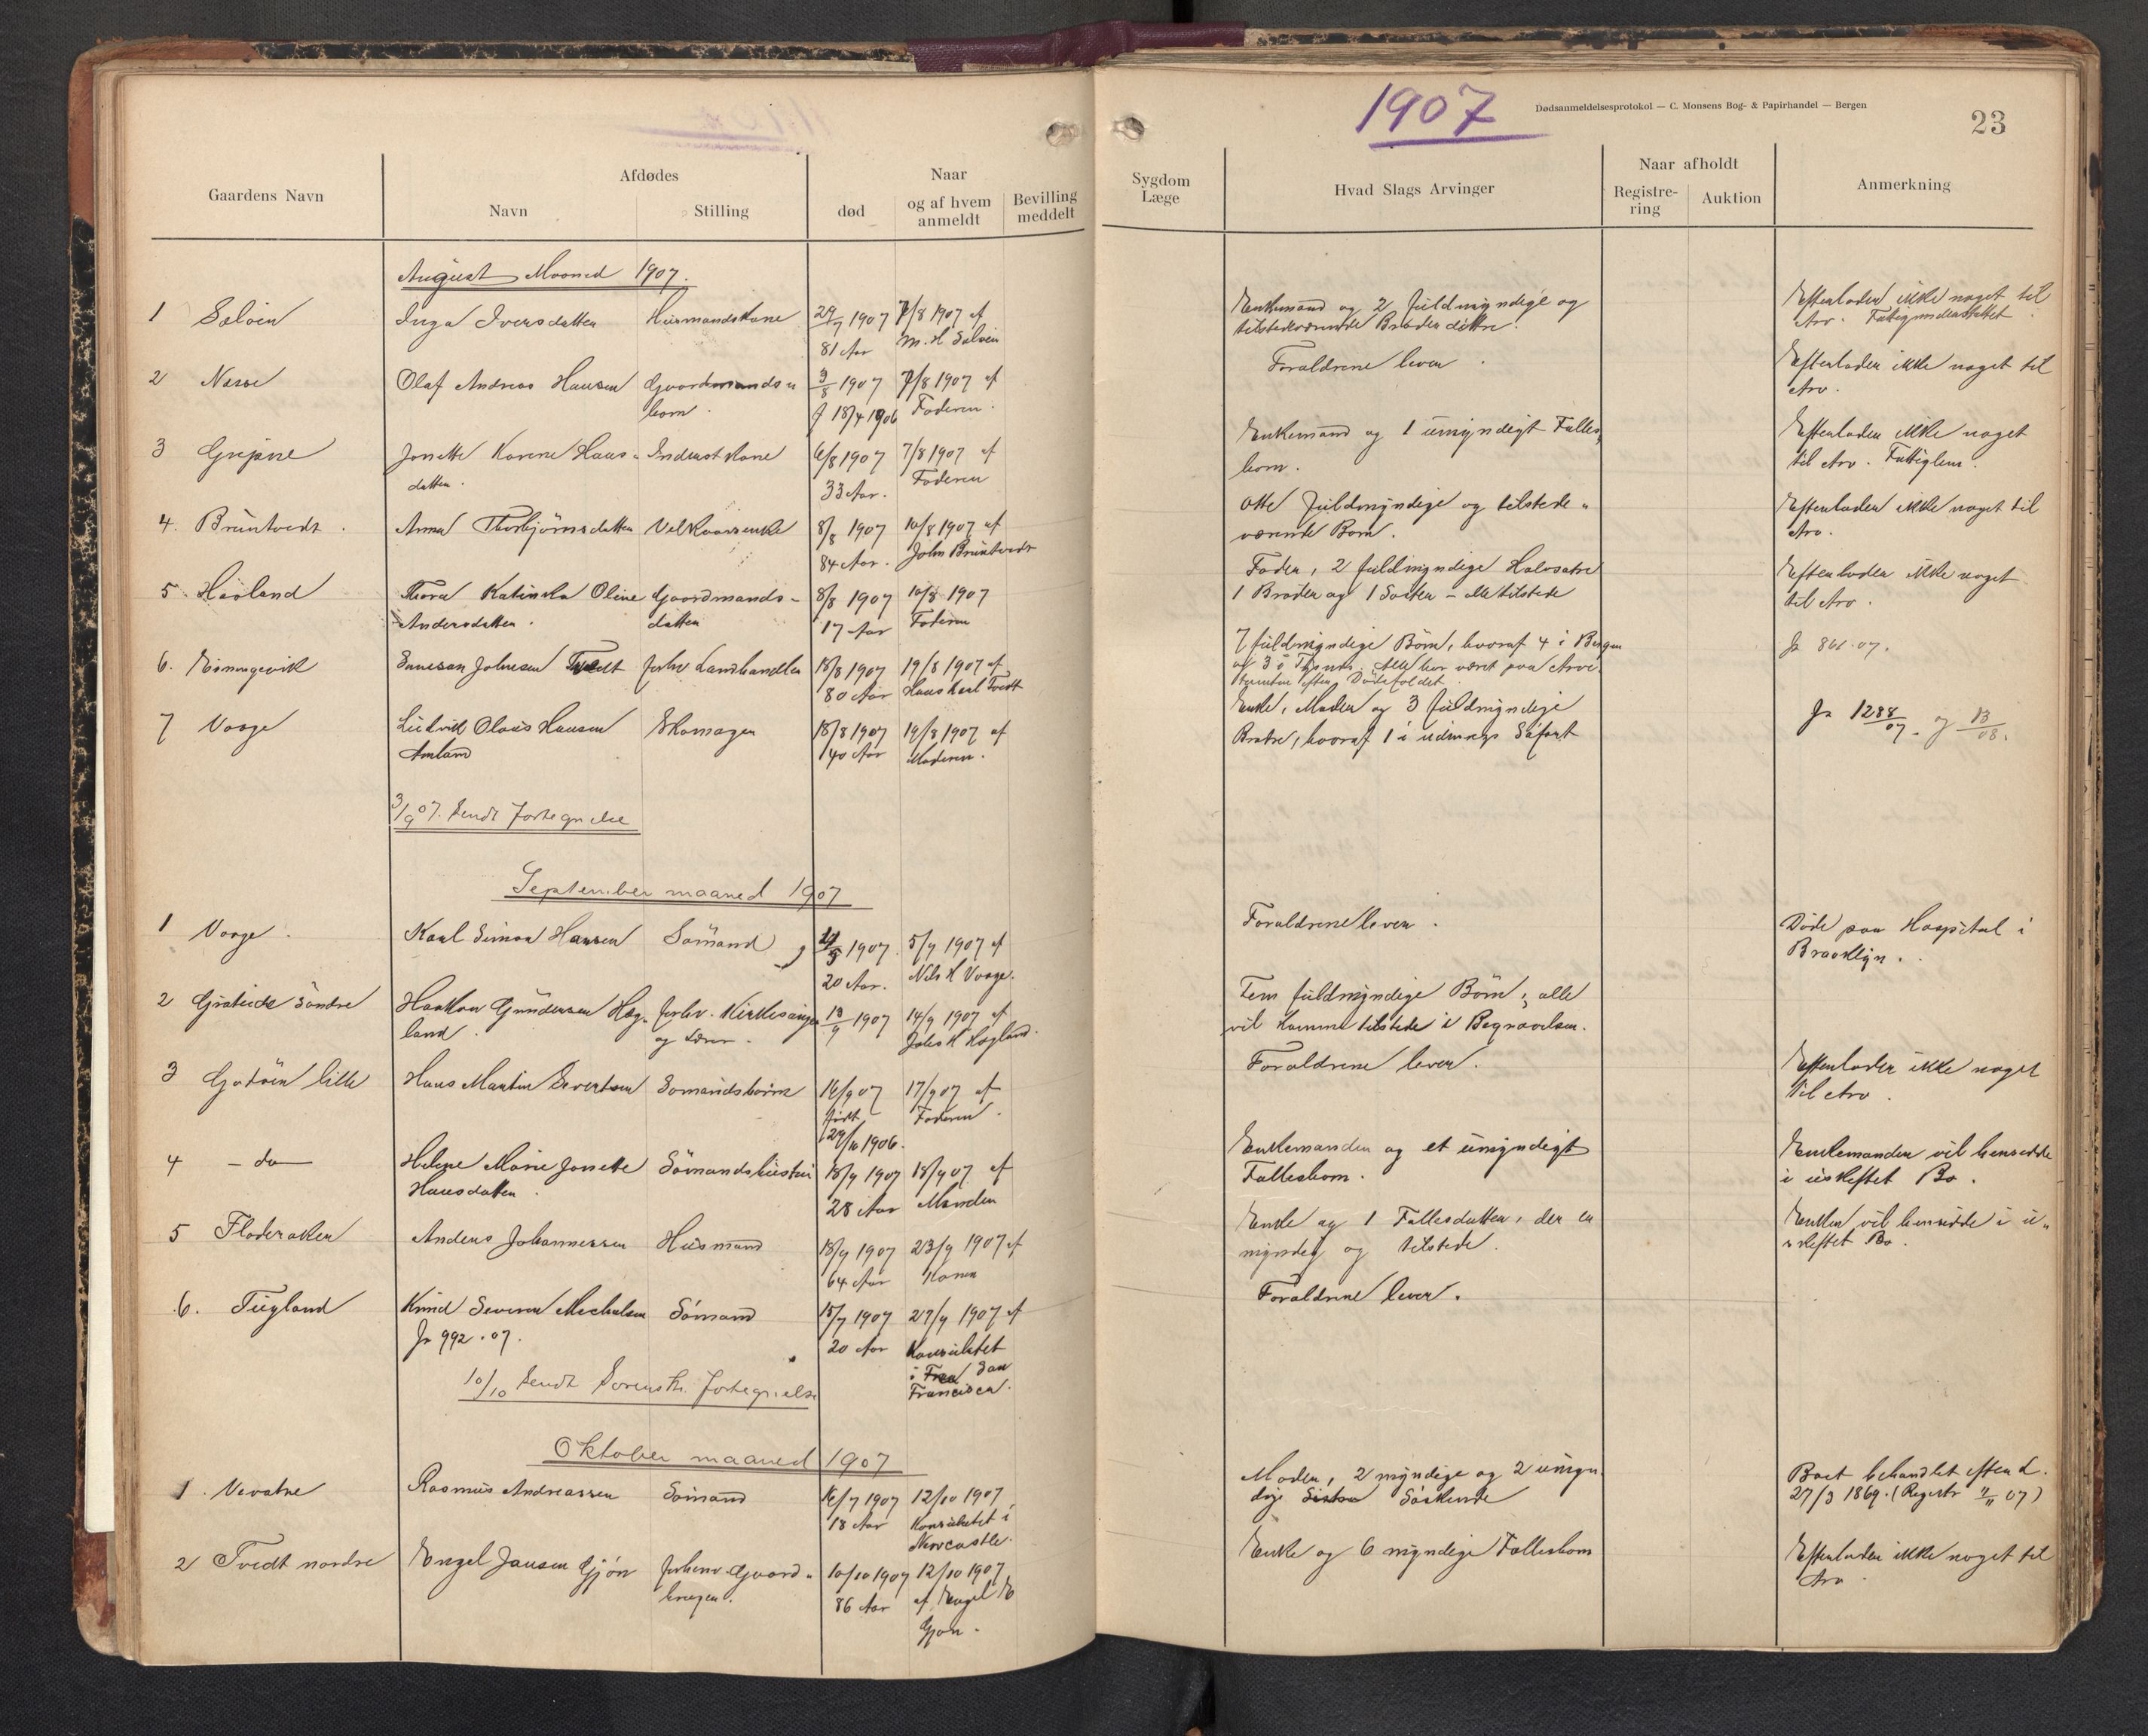 1907
Dødsanmeldelsesprotokol — C. Monsens Bog- & Papirhandel — Bergen
23
Gaardens Navn
Afdødes
Navn
Stilling
Naar
død
og af hvem anmeldt
Bevilling meddelt
Sygdom
Læge
Hvad Slags Arvinger
Naar afholdt
Registre-
ring
Auktion
Anmerkning
August Maaned 1907.
1 Inga Iversdatter Husmandskone 29/7 1907 7/8 1907 af
81 Aar
Enkemand og 2 fuldmyndige og
tilstedeværende
Efterlader ikke noget til
Arv.
2 Olaf Andreas Hansen Gaardmands-
barn.
3/8 1907 7/8 1907 af
f 18/4 1906 Faderen.
Forældrene lever.
Efterlader ikke noget til
Arv.
3 Jonette Karene Hans-
datter.
6/8 1907 7/8 1907 af
33 Aar. Faderen
Enkemand og 1 umyndigt Fælles-
barn.
Efterlader ikke noget
til Arv.
4. Bruntvedt. Anna Thorbjørnsdatter 8/8 1907 10/8 1907 af
84 Aar. John Bruntvedt
Otte fuldmyndige og tilstede-
værende Børn.
Efterlader ikke noget til
Arv.
5. Håland Thora Katinka Oline Gaardmands-
Andersdatter. datter
8/8 1907 10/8 1907
17 Aar Faderen
Fader, 2 fuldmyndige Halvsøstre
1 Broder og 1 Søster - alle tilstede
Efterlader ikke noget
til Arv.
6. Johnsen Tvedt forhv. Landhandler 18/8 1907 19/8 1907 af
80 Aar Hans Karl Tvedt
7 fuldmyndige Børn, hvoraf 4 i Bergen
Alle har været paa
Jr 861.07.
7 Vaage Ludvik Olaus Hansen Skomager 18/8 1907 19/8 1907 af
Amland 40 Aar Moderen.
Enke, Moder og 3 fuldmyndige
Brødre, hvoraf 1 i udenrigs Søfart
Jr 1288/07. og 13/08.
3/9 07. Sendt fortegnelse
September maaned 1907
1 Vaage. Karl Simon Hansen Sømand 1907 5/9 1907 af
20 Aar. Nils H Vaage.
Forældrene lever.
Døde paa Hospital i
Brooklyn.
2 søndre Haakon Gundersen Hæg-
land.
forhv. Kirkesanger
og Lærer.
13/9 1907 14/9 1907 af
Fem fuldmyndige Børn; alle
vil komme tilstede i Begravelsen.
3 lille Hans Martin Severtsen Sømandsbarn 16/9 07 17/9 07 af
født Faderen.
29/10 1906.
Forældrene lever.
Efterlader ikke noget
til Arv.
4 - do - Helene Marie Jonette Sømandshustru 18/9 1907 18/9 07 af
Hansdatter. 28 Aar Manden
Enkemanden og et umyndigt
Fællesbarn.
Enkemanden vil hensidde
i uskiftet Bo.
5 Anders Johannessen Husmand 18/9 1907 23/9 1907 af
64 Aar Konen
Enke og 1 Fællesdatter, der er
myndig og tilstede.
Enken vil hensidde i u-
skiftet Bo.
6. Tugland Knud Severin Michalsen Sømand 15/7 1907 27/9 1907 af
Jr 992.07. 20 Aar Konsulatet
i San
Francisco.
Forældrene lever.
10/10 Sendt Sorenskr. fortegnelse
Oktober maaned 1907
1. Rasmus Andreassen Sømand 16/7 1907 12/10 1907,
18 Aar Konsulatet i
Newcastle.
Moder, 2 myndige og 2 umyn-
dige Søskende
Boet behandlet efter L.
27/3 1869. (Registr 11/11 07)
2 Tvedt nordre Engel Jansen Gjøn forhenv. Gaard-
bruger.
10/10 1907 12/10 1907
86 Aar af Engel E
Gjøn.
Enke og 6 myndige Fællesbørn
Efterlader ikke noget til
Arv.